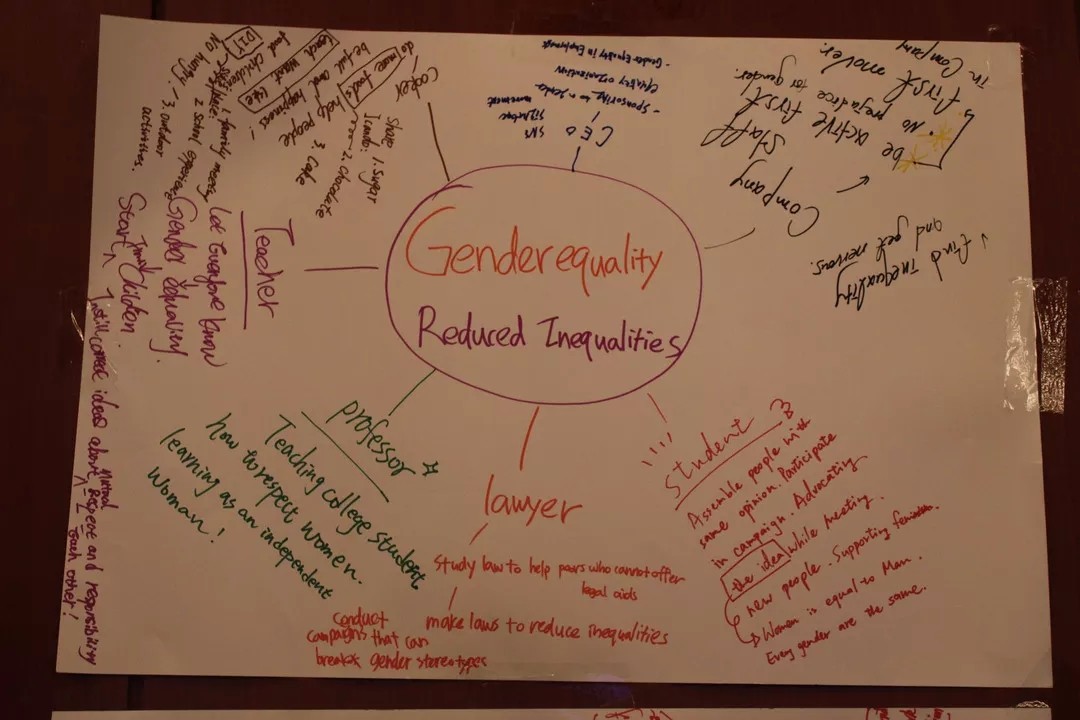 Genderequality
Reduced Inequalities
CEO
- Sponsoring
- Gender Equality in Employment
Company
Staff
be active first
first mover.
in Company
• No prejudice for gender.
↓ find inequality
and get nervous.
Student
Assemble people with
same opinion. Participate
in campaign. Advocating
the idea while meeting
new people. Supporting feminism.
Women is equal to Man.
Every gender are the same.
lawyer
Study law to help poors who cannot offer
legal aids
make laws to reduce inequalities
conduct
campaigns that can
breaks gender stereotypes
professor
Teaching college student
how to respect women.
learning as an independent
Woman!
Teacher
Let Everyone know
Gender Equality.
Start from Children.
Instill correct ideas about Mutual Respect and responsibility
each other!
Cooker
do/make foods
be full and
help people
happiness!
Shape 1. Sugar
2. Chocolate
3. Cake
DIY
1. family
2. School experience
3. outdoor
activities.
NO hungry!